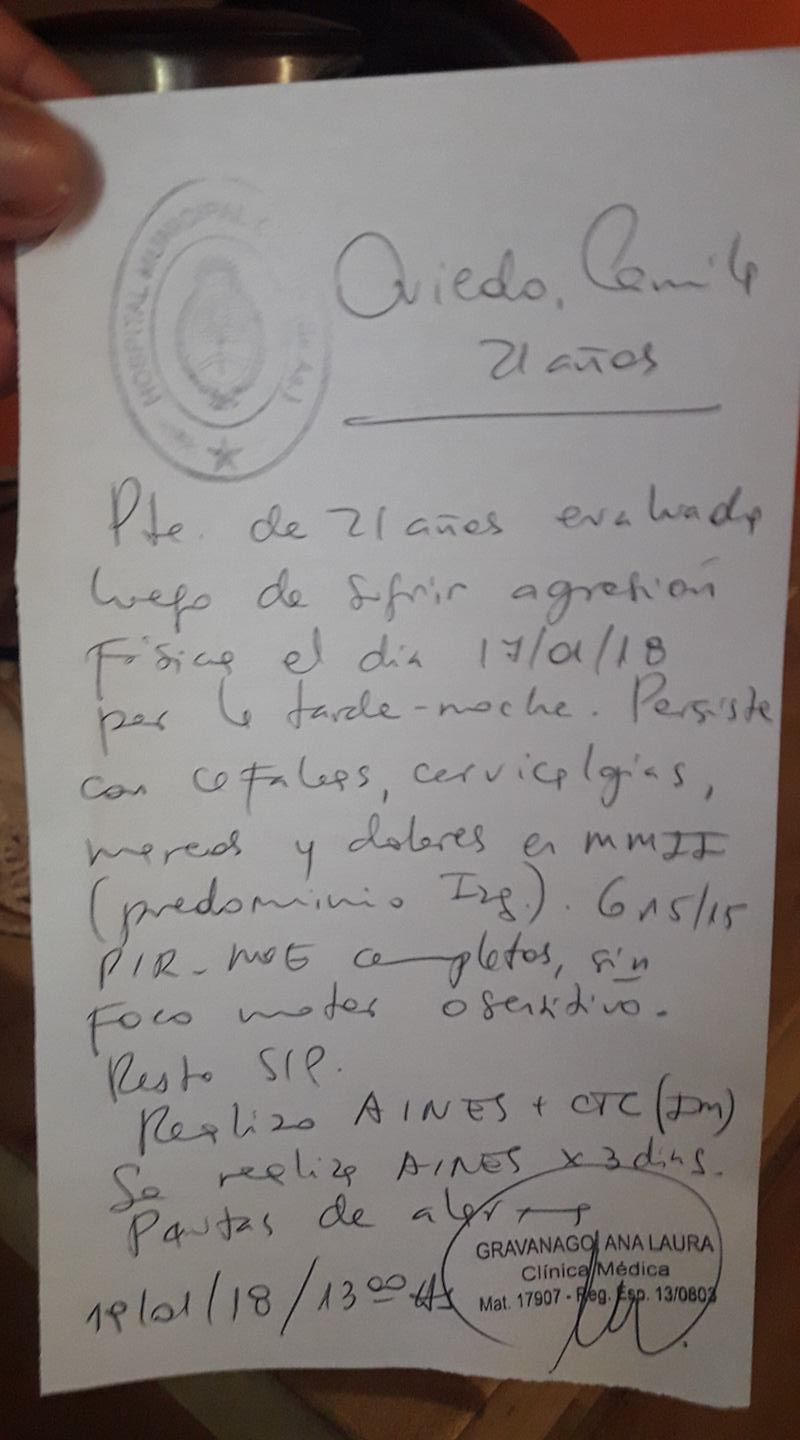 HOSPITAL MUNICIPAL
Oviedo, Camila
21 años
Pte. de 21 años evaluada
luego de sufrir agresión
física el día 17/01/18
por la tarde-noche. Persiste
con cefaleas, cervicalgias,
mareos y dolores en MMII
(predominio Izq.). G 15/15
PIR - MOE completos, sin
foco motor o sensitivo.
Resto S/P.
Realizo AINES + CTC (IM)
Se realiza AINES x 3 días.
Pautas de alarma
GRAVANAGO ANA LAURA
Clínica Médica
Mat. 17907 - Reg. Esp. 13/0803
19/01/18/13 00 Hs